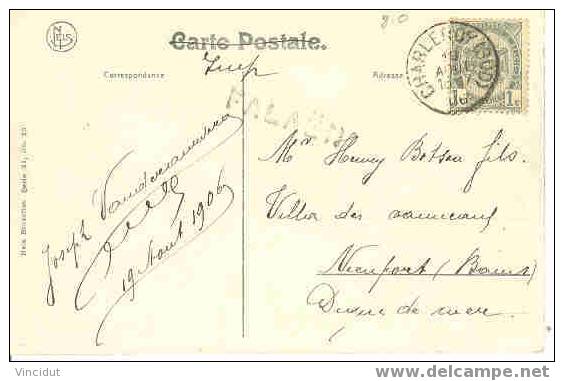 NELS
Carte Postale.
Correspondance
Adresse
Imp
CHARLEROY (SUD)
1c
Nels, Bruxelles, Serie 21, No. 25
Joseph Vander
19 Aout 1906
Mr Henry Botson fils.
Villa des
Nieuport (Bains)
Digue de mer
© Vincidut
delcampe.net